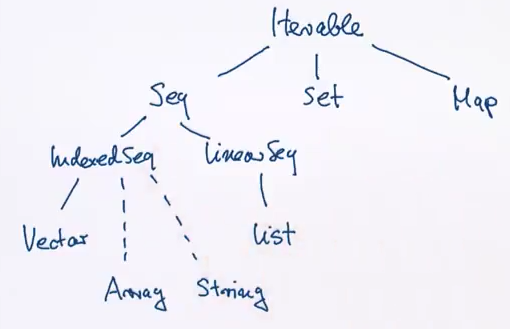 Iterable
Seq
Set
Map
IndexedSeq
LinearSeq
Vector
List
Array
String